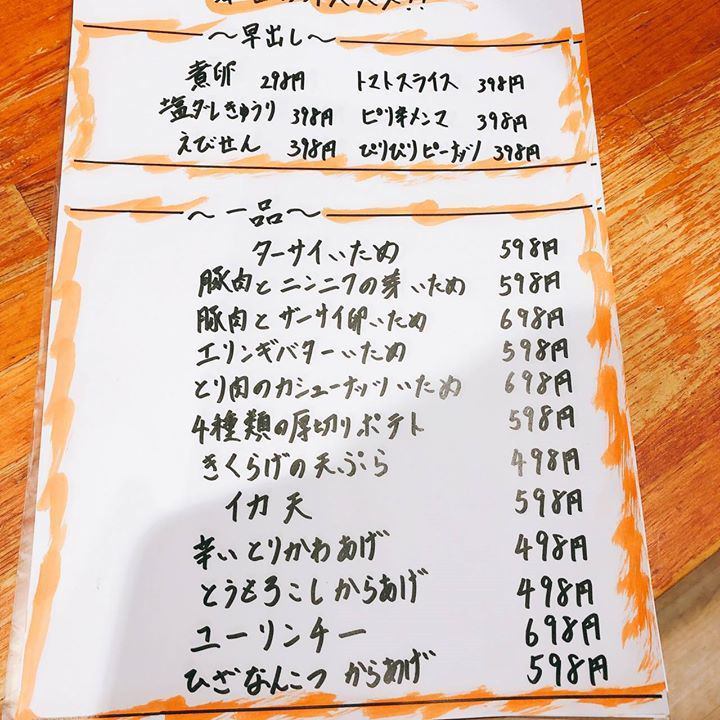 〜早出し〜
煮卵 298円 トマトスライス 398円
塩ダレきゅうり 398円 ピリ辛メンマ 398円
えびせん 398円 ぴりぴりピーナッツ 398円
〜一品〜
ターサイいため 598円
豚肉とニンニクの芽いため 598円
豚肉とザーサイ卵いため 698円
エリンギバターいため 598円
とり肉のカシューナッツいため 698円
4種類の厚切りポテト 598円
きくらげの天ぷら 498円
イカ天 598円
辛いとりかわあげ 498円
とうもろこしからあげ 498円
ユーリンチー 698円
ひざなんこつからあげ 598円